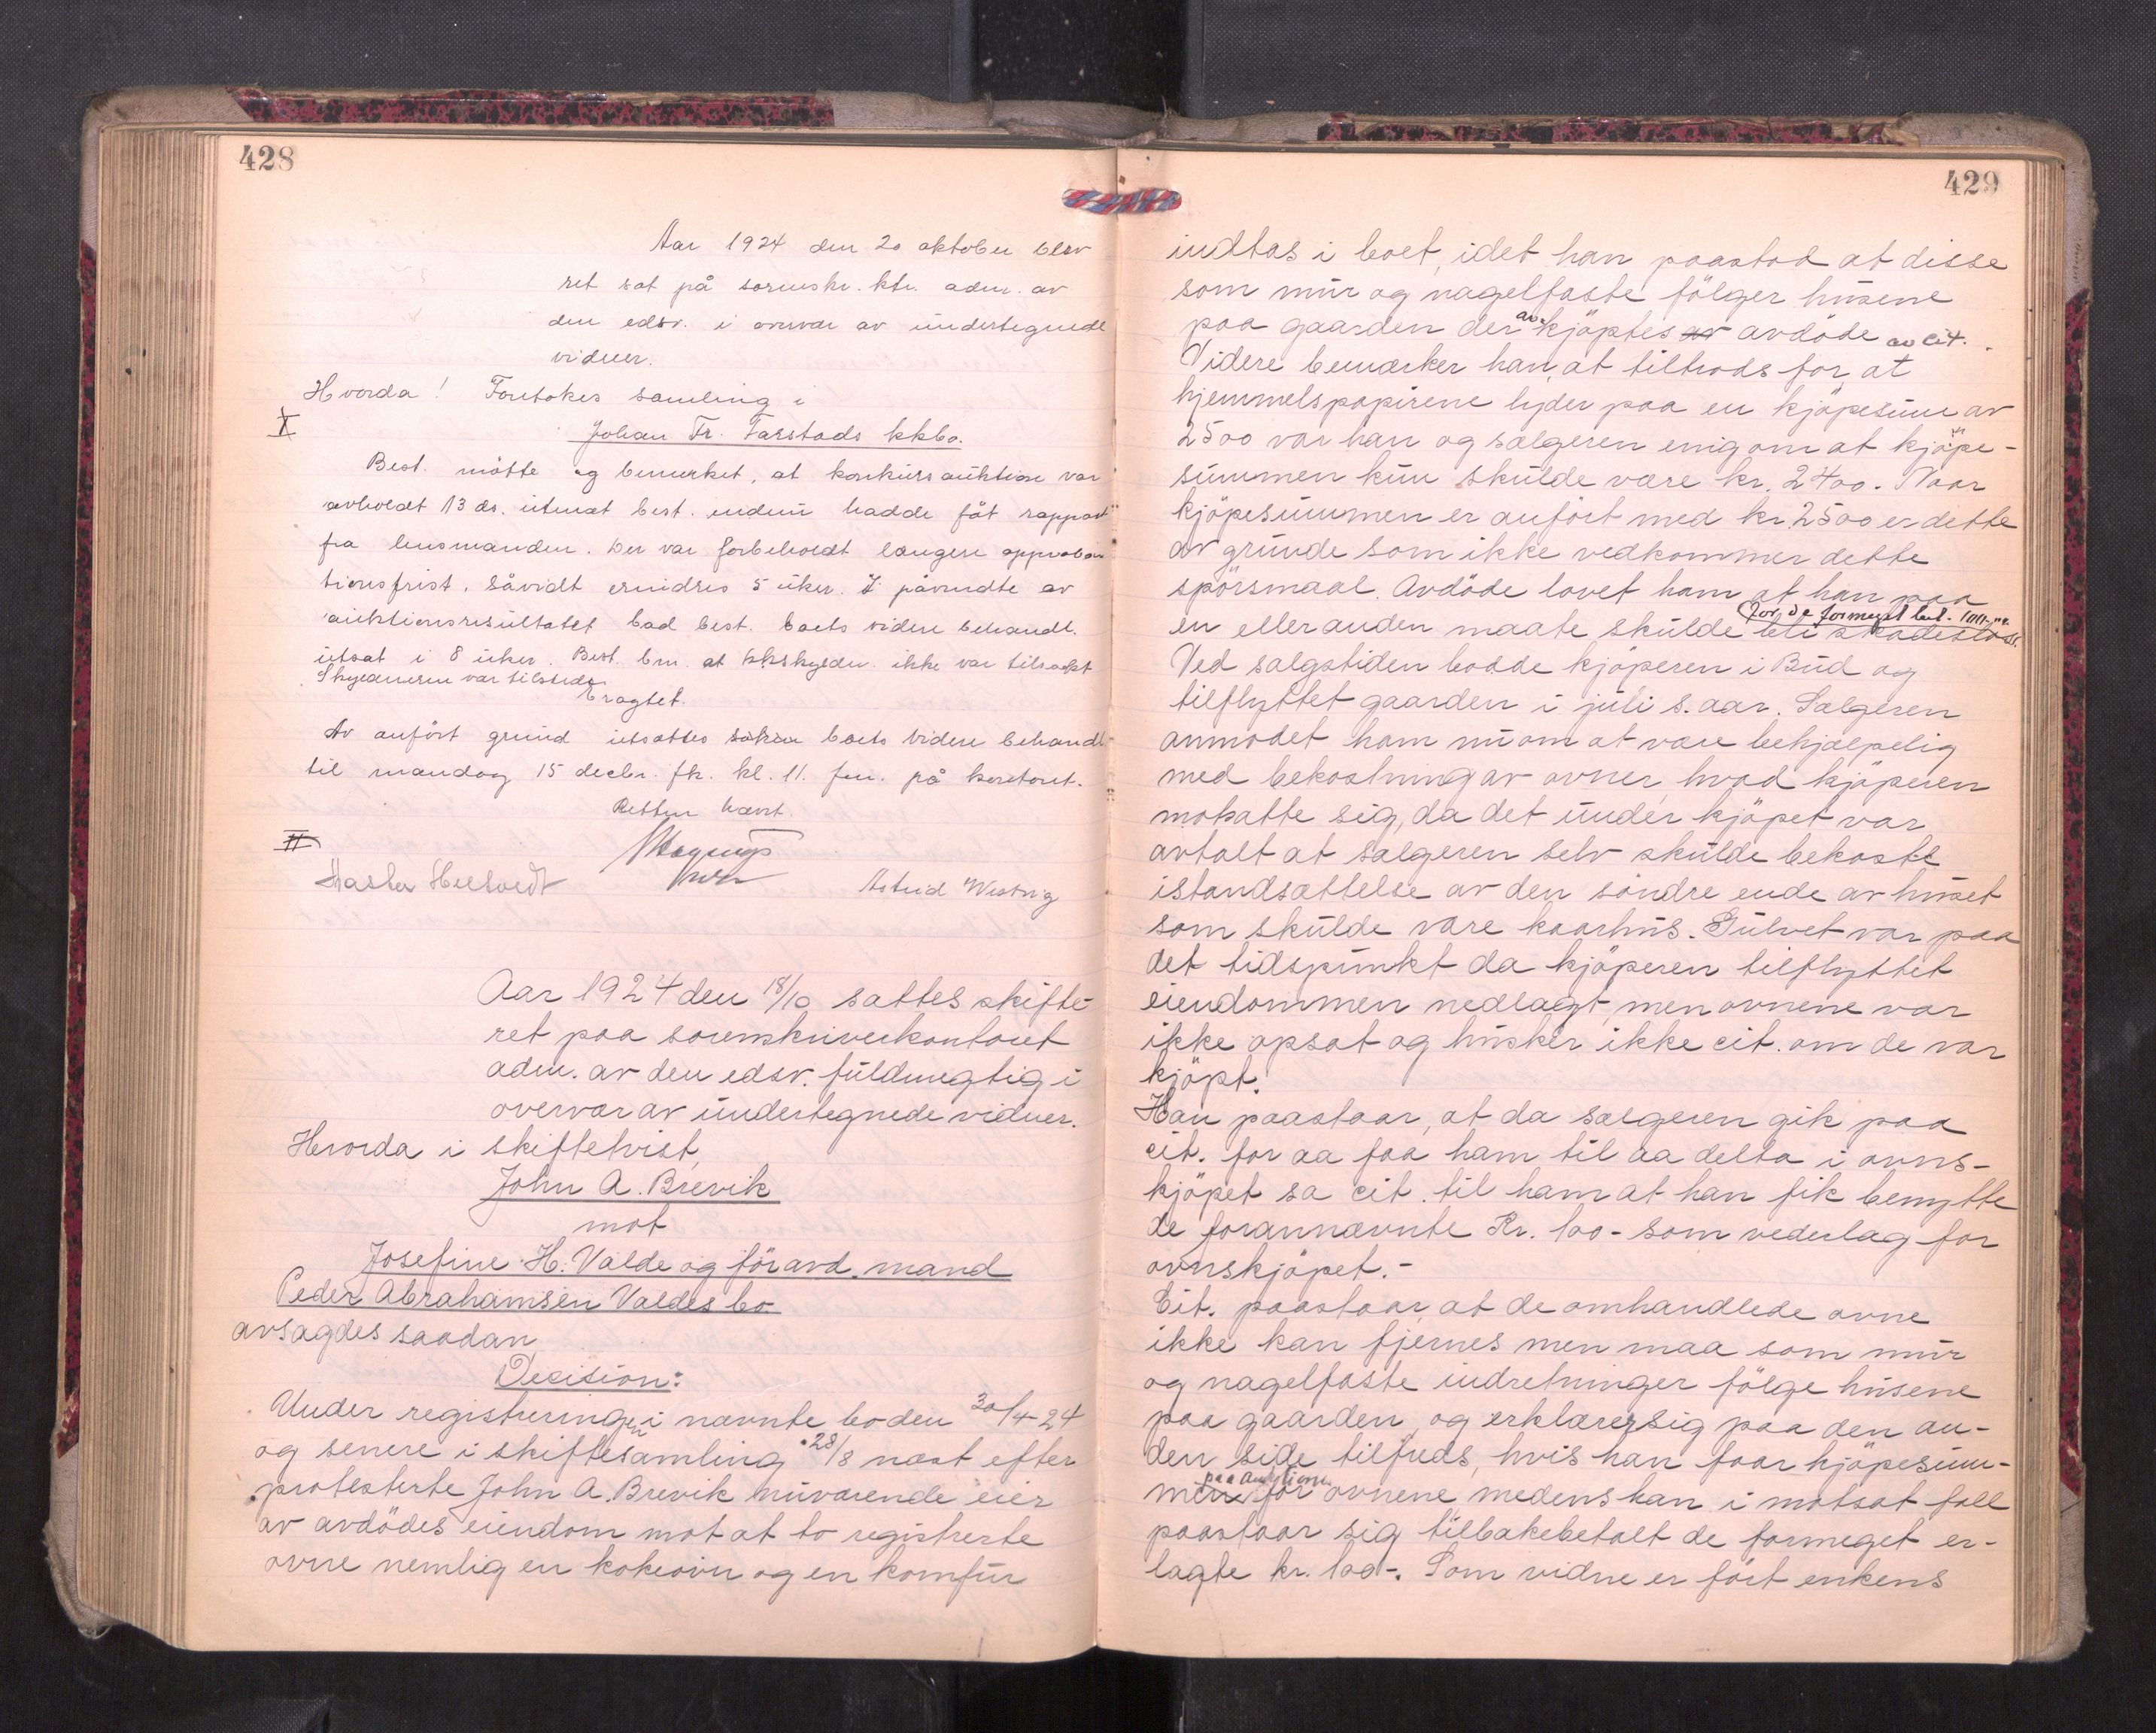 428
Aar 1924 den 20 oktober blev
ret sat på sorenskr. ktr. adm. av
den edsv. i overvær av undertegnede
vidner.
Hvorda! Foretokes samling i
I
Johan Fr. Farstads kkbo.
Best. mötte og bemerket, at konkursauktion var
avholdt 13 ds. uten at best. endnu hadde fåt rapport
fra lensmanden. Der var forbeholdt længere approba-
tionsfrist, såvidt erindres 5 uker. I påvente av
auktionsresultatet bad best. boets videre behandl.
utsat i 8 uker. Best. bm. at kkskylder ikke var tilsagt
Skyldneren var tilstede
Eragtet.
Av anfört grund utsattes boets videre behandl.
til mandag 15 decbr. fk. kl. 11 fm. på kontoret.
Retten hævet.
II
Astrid Westvig
Aar 1924 den 18/10 sattes skifte-
ret paa sorenskriverkontoret
adm. av den edsv. fuldmegtig i
overvær av undertegnede vidner.
Hvorda i skiftetvist,
John A. Brevik
mot
Josefine H. Valde og för avd. mand
Peder Abrahamsen Valdes bo
avsagdes saadan
Decision:
Under registreringen i nævnte bo den 30/4-24
og senere i skiftesamling 28/8 næst efter
protesterte John A. Brevik nuværende eier
av avdödes eiendom mot at to registrerte
ovne nemlig en kokeovn og en komfur
429
indtas i boet, idet han paastod at disse
som mur og nagelfaste fölger husene
paa gaarden der av kjöptes av avdöde av cit.
Videre bemærker han, at tiltrods for at
hjemmelspapirene lyder paa en kjöpesum av
2500 var han og sælgeren enig om at kjöpe-
summen kun skulde være kr. 2400. Naar
kjöpesummen er anfört med kr. 2500 er dette
av grunde som ikke vedkommer dette
spörsmaal. Avdöde lovet ham at han paa
for de formeget bet. 100 kr.
en eller anden maate skulde bli skadeslös.
Ved salgstiden bodde kjöperen i Bud og
tilflyttet gaarden i juli s. aar. Sælgeren
anmodet ham nu om at være behjælpelig
med bekostning av ovner, hvad kjöperen
motsatte sig, da det under kjöpet var
avtalt at sælgeren selv skulde bekoste
istandsættelse av den söndre ende av huset
som skulde være kaarhus. Gulvet var paa
det tidspunkt da kjöperen tilflyttet
eiendommen nedlagt, men ovnene var
ikke opsat og husker ikke cit. om de var
kjöpt.
Han paastaar, at da sælgeren gik paa
cit. for aa faa ham til aa delta i ovns-
kjöpet sa cit. til ham at han fik benytte
de forannævnte Kr. 100- som vederlag for
ovnskjöpet.-
Cit. paastaar, at de omhandlede ovne
ikke kan fjernes men maa som mur
og nagelfaste indretninger fölge husene
paa gaarden, og erklærer sig paa den an-
den side tilfreds, hvis han faar kjöpesum-
paa auktionen
men for ovnene medens han i motsat fall
paastaar sig tilbakebetalt de formeget er-
lagte kr. 100-. Som vidne er fört enkens